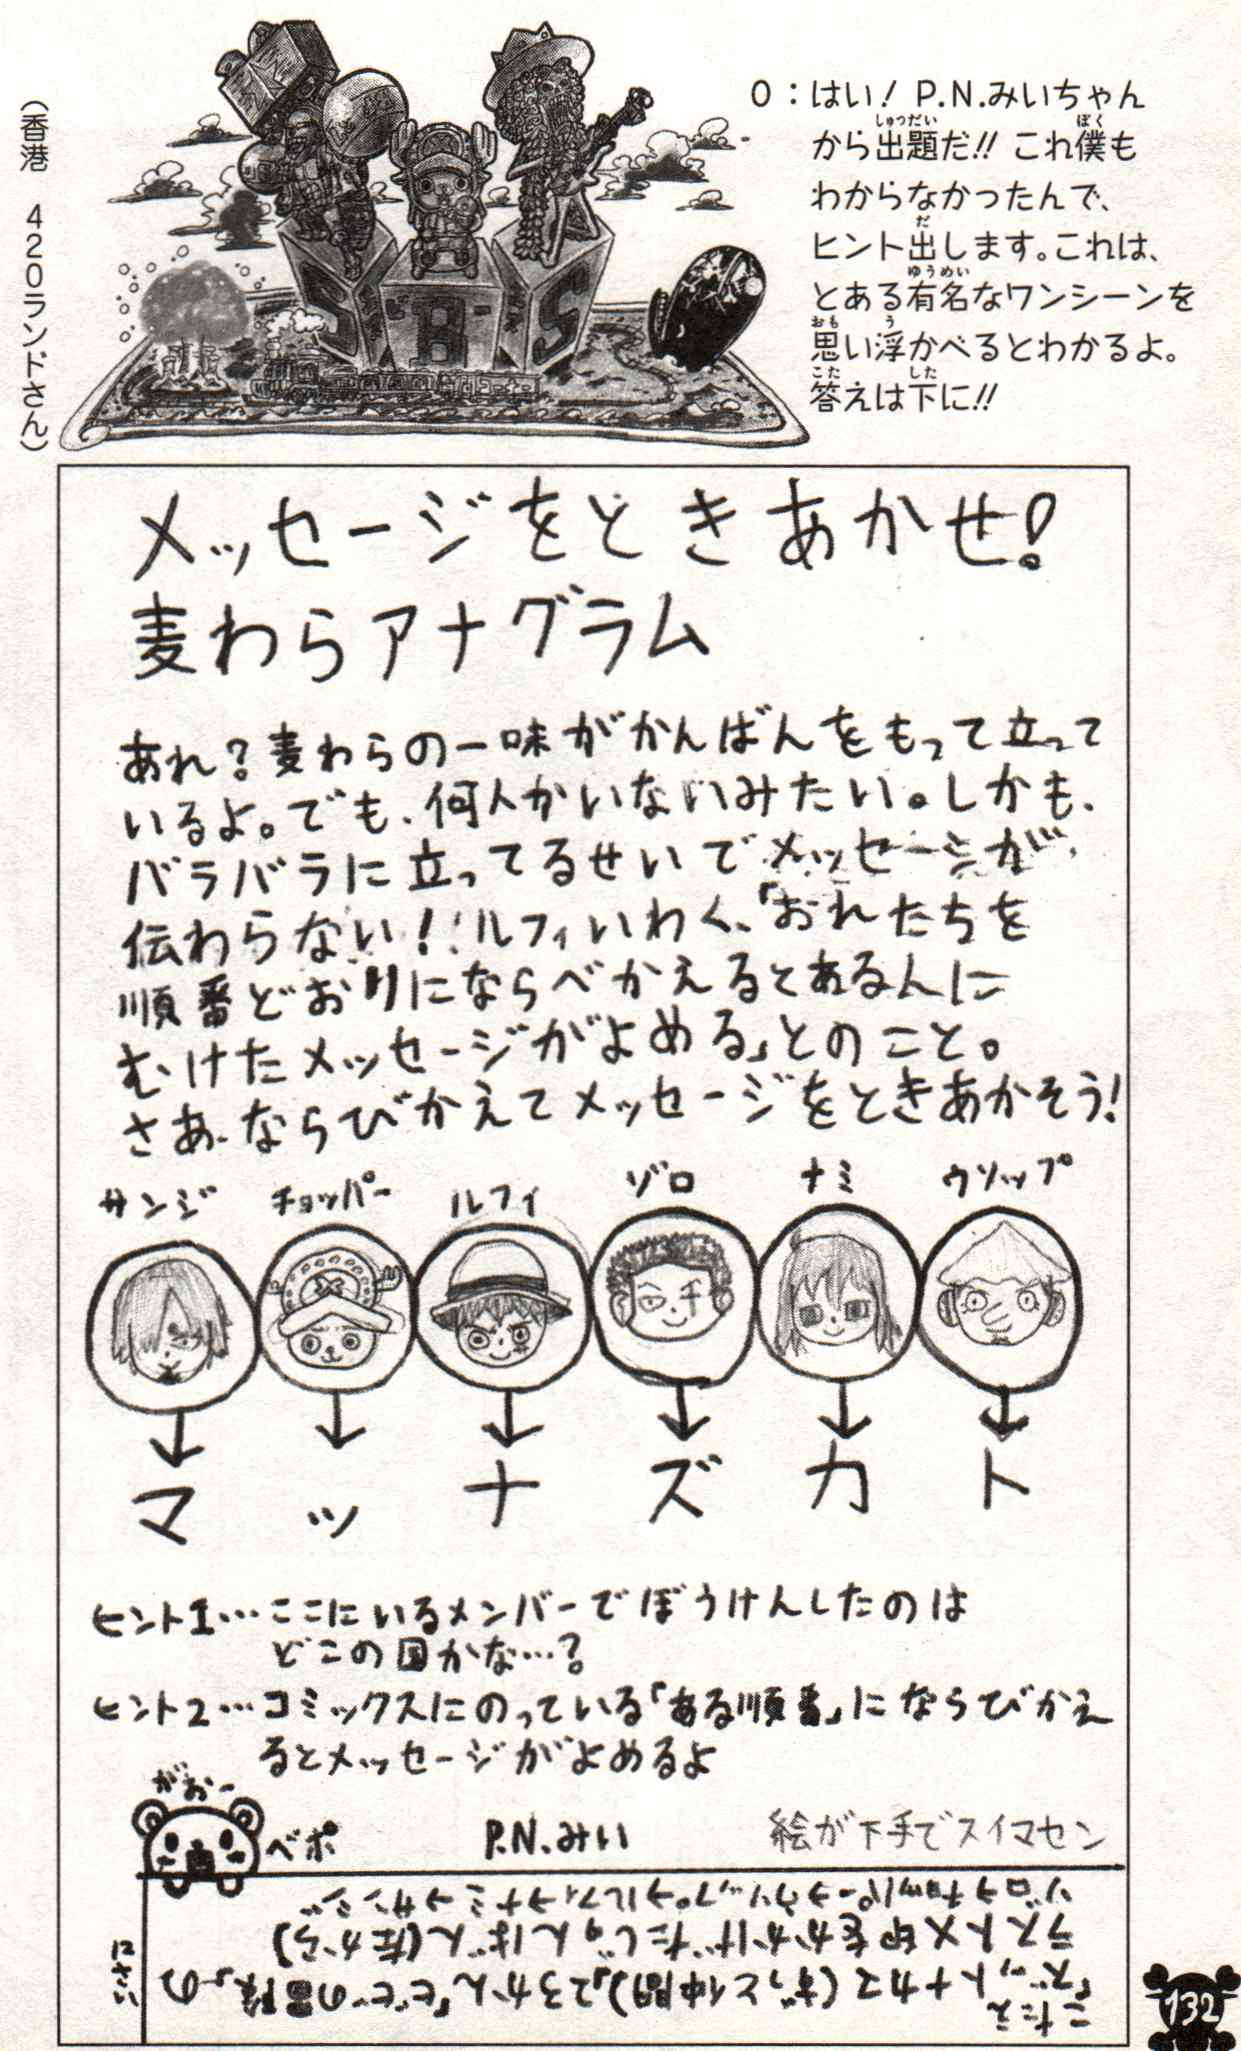 （香港　420ランドさん）
SBS
O：はい！ P.N.みいちゃん
しゅつだい ぼく
から出題だ!! これ僕も
わからなかったんで、
だ
ヒント出します。これは、
ゆうめい
とある有名なワンシーンを
おも う
思い浮かべるとわかるよ。
こた した
答えは下に!!
メッセージをときあかせ!
麦わらアナグラム
あれ?麦わらの一味がかんばんをもって立って
いるよ。でも、何人かいないみたい。しかも、
バラバラに立ってるせいでメッセージが
伝わらない!!ルフィいわく、「おれたちを
順番どおりにならべかえるとあるんに
むけたメッセージがよめる」とのこと。
さあ、ならびかえてメッセージをときあかそう!
サンジ チョッパー ルフィ ゾロ ナミ ウソップ
マ ッ ナ ズ カ ト
ヒント1…ここにいるメンバーでぼうけんしたのは
どこの国かな…?
ヒント2…コミックスにのっている「ある順番」にならびかえ
るとメッセージがよめるよ
がおー
ベポ P.N.みい 絵が下手でスイマセン
こたえ
「ズットナカマ(ずっと仲間)」23かん「ビビの冒険」の
ラスト×印をかかげたじゅんばん(左から)
ゾロ→チョッパー→ウソップ→ルフィ→ナミ→サンジ
132